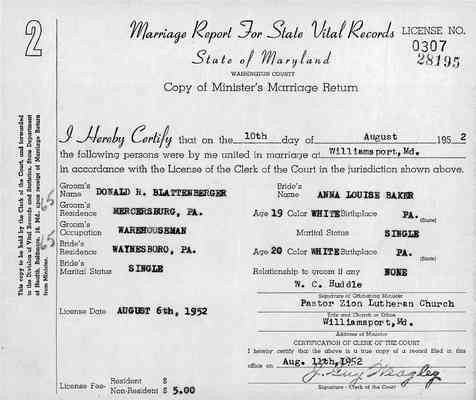 2
Marriage Report For State Vital Records
LICENSE NO.
0307
28195
State of Maryland
WASHINGTON COUNTY
Copy of Minister's Marriage Return
This copy to be held by the Clerk of the Court, and forwarded
to the Division of Vital Records and Statistics, State Department
of Health, Baltimore, 18, Md., upon receipt of Marriage Return
from Minister.
65
65
I Hereby Certify that on the 10th day of August 1952
the following persons were by me united in marriage at Williamsport, Md.
in accordance with the License of the Clerk of the Court in the jurisdiction shown above.
Groom's Name DONALD R. BLATTENBERGER Bride's Name ANNA LOUISE BAKER
Groom's Residence MERCERSBURG, PA. Age 19 Color WHITE Birthplace PA.
(State)
Groom's Occupation WAREHOUSEMAN Marital Status SINGLE
Bride's Residence WAYNESBORO, PA. Age 20 Color WHITE Birthplace PA.
(State)
Bride's Marital Status SINGLE Relationship to groom if any NONE
W. C. Huddle
Signature of Officiating Minister
Pastor Zion Lutheran Church
Title and Church or Office
License Date AUGUST 6th, 1952 Williamsport, Md.
Address of Minister
CERTIFICATION OF CLERK OF THE COURT
I hereby certify that the above is a true copy of a record filed in this
office on Aug. 11th, 1952
License Fee- Resident $
Non-Resident $ 5.00
Signature - Clerk of the Court